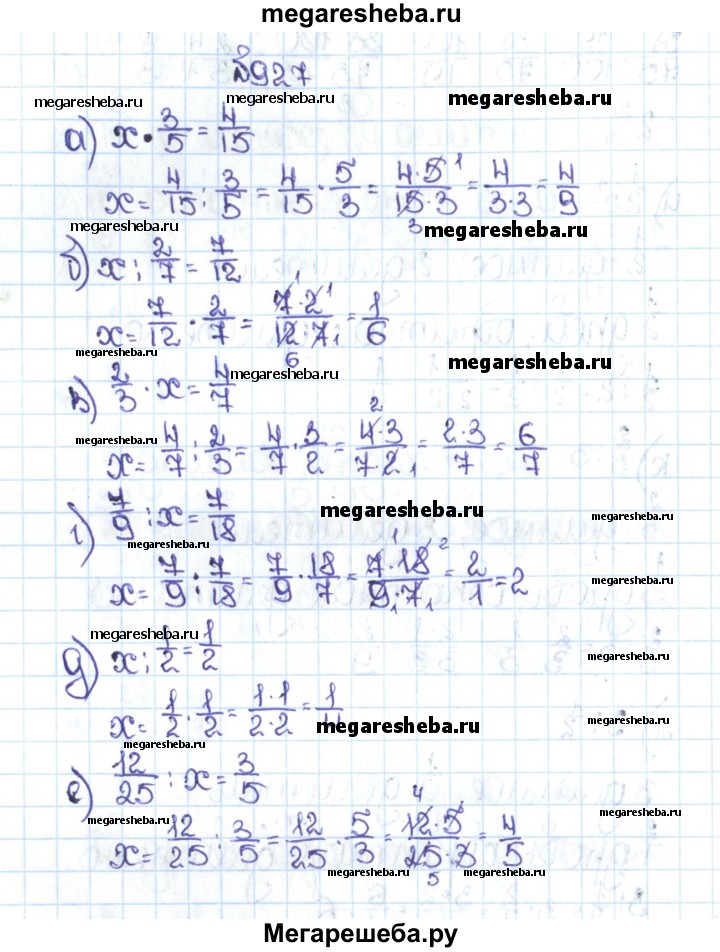 megaresheba.ru
№927
megaresheba.ru megaresheba.ru megaresheba.ru
а) x · 3/5 = 4/15
x = 4/15 : 3/5 = 4/15 · 5/3 = 4·5 1/15·3 3 = 4/3·3 = 4/9
megaresheba.ru megaresheba.ru
б) x : 2/7 = 7/12
x = 7/12 · 2/7 = 1 7·2 1/12·7 6 1 = 1/6
megaresheba.ru megaresheba.ru megaresheba.ru
в) 2/3 · x = 4/7
megaresheba.ru
x = 4/7 : 2/3 = 4/7 · 3/2 = 2 4·3/7·2 1 = 2·3/7 = 6/7
г) 7/9 : x = 7/18
megaresheba.ru megaresheba.ru megaresheba.ru
x = 7/9 : 7/18 = 7/9 · 18/7 = 1 7·18 2/9·7 1 1 = 2/1 = 2
megaresheba.ru
megaresheba.ru
д) x : 1/2 = 1/2
megaresheba.ru
x = 1/2 · 1/2 = 1·1/2·2 = 1/4
megaresheba.ru
megaresheba.ru megaresheba.ru
е) 12/25 : x = 3/5
megaresheba.ru megaresheba.ru
x = 12/25 : 3/5 = 12/25 · 5/3 = 4 12·5 1/25·3 5 = 4/5
megaresheba.ru megaresheba.ru
Мегарешеба.ру